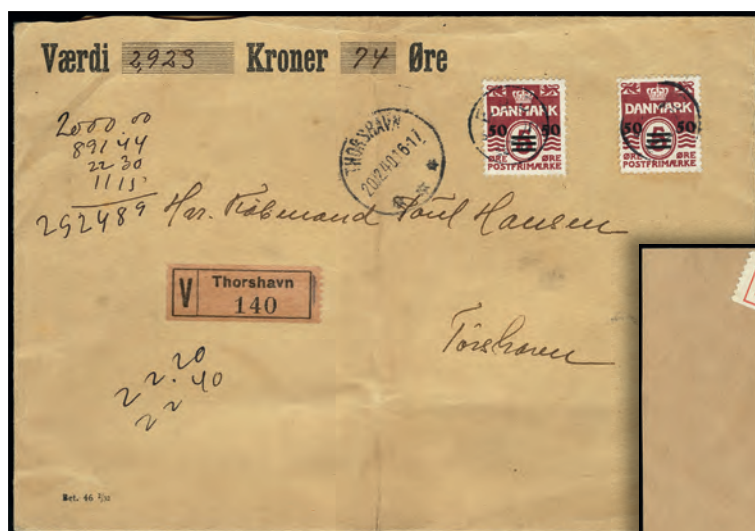 Værdi 2,923 Kroner 74 Øre
2000.00
891.44
22 30
11 15
292489
THORSHAVN
20.12.40.16-17
DANMARK
50 50
ØRE ØRE
POSTFRIMÆRKE
DANMARK
50 50
ØRE ØRE
POSTFRIMÆRKE
Hr. Købmand Poul Hansen
V Thorshavn
140
Tórshavn
22.20
22 40